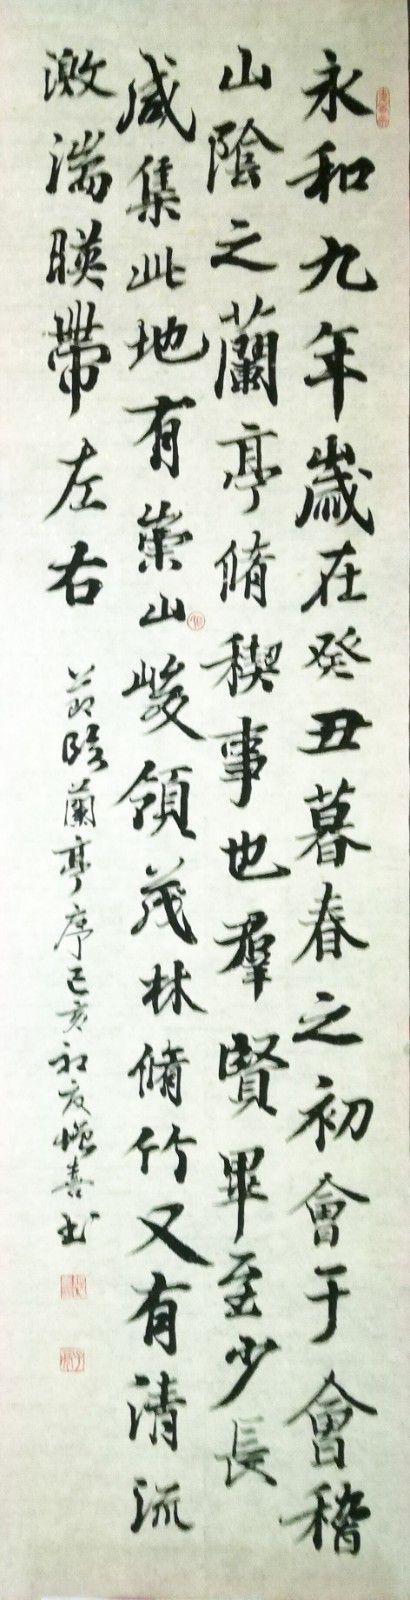 永和九年歲在癸丑暮春之初會于會稽
山陰之蘭亭脩稧事也羣賢畢至少長
咸集此地有崇山峻領茂林脩竹又有清流
激湍暎帶左右
節臨蘭亭序己亥初夏 喜书